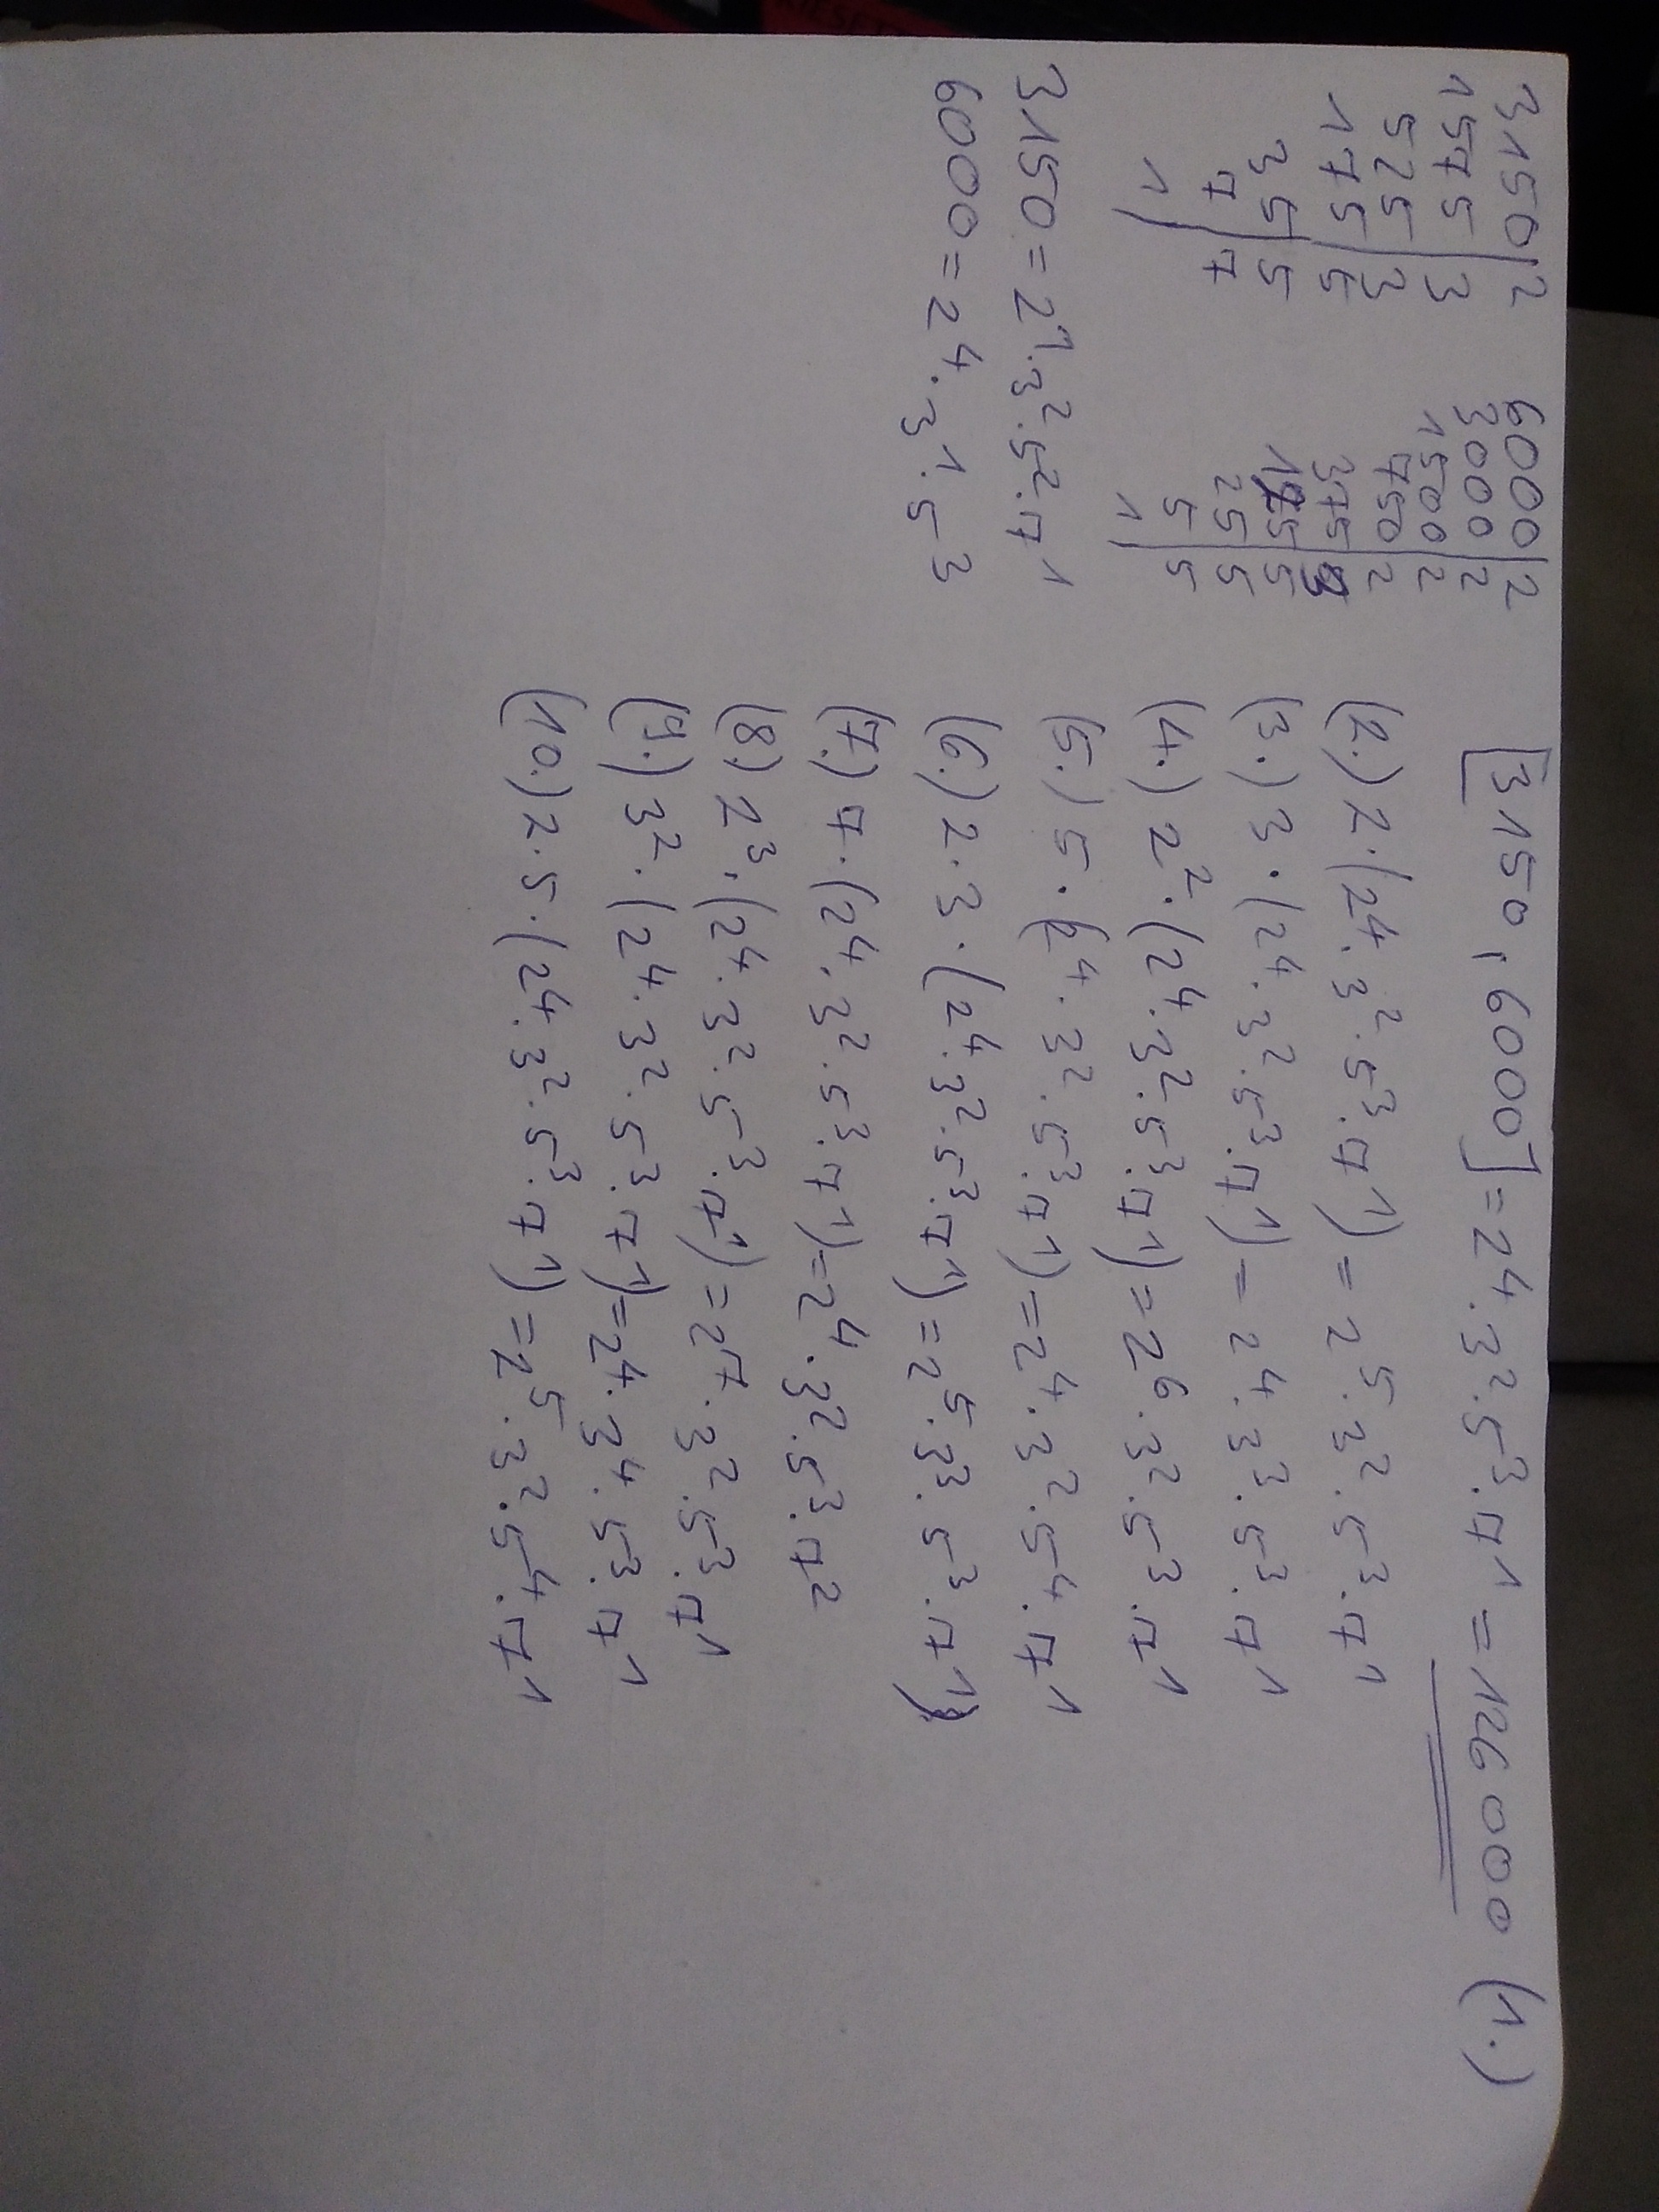 3150|2
1575|3
525|3
175|5
35|5
7|7
1|
6000|2
3000|2
1500|2
750|2
375|3
125|5
25|5
5|5
1|
3150 = 2¹·3²·5²·7¹
6000 = 2⁴·3¹·5³
[3150; 6000] = 2⁴·3²·5³·7¹ = 126000 (1.)
(2.) 2·(2⁴·3²·5³·7¹) = 2⁵·3²·5³·7¹
(3.) 3·(2⁴·3²·5³·7¹) = 2⁴·3³·5³·7¹
(4.) 2²·(2⁴·3²·5³·7¹) = 2⁶·3²·5³·7¹
(5.) 5·(2⁴·3²·5³·7¹) = 2⁴·3²·5⁴·7¹
(6.) 2·3·(2⁴·3²·5³·7¹) = 2⁵·3³·5³·7¹)
(7.) 7·(2⁴·3²·5³·7¹) = 2⁴·3²·5³·7²
(8) 2³·(2⁴·3²·5³·7¹) = 2⁷·3²·5³·7¹
(9.) 3²·(2⁴·3²·5³·7¹) = 2⁴·3⁴·5³·7¹
(10.) 2·5·(2⁴·3²·5³·7¹) = 2⁵·3²·5⁴·7¹